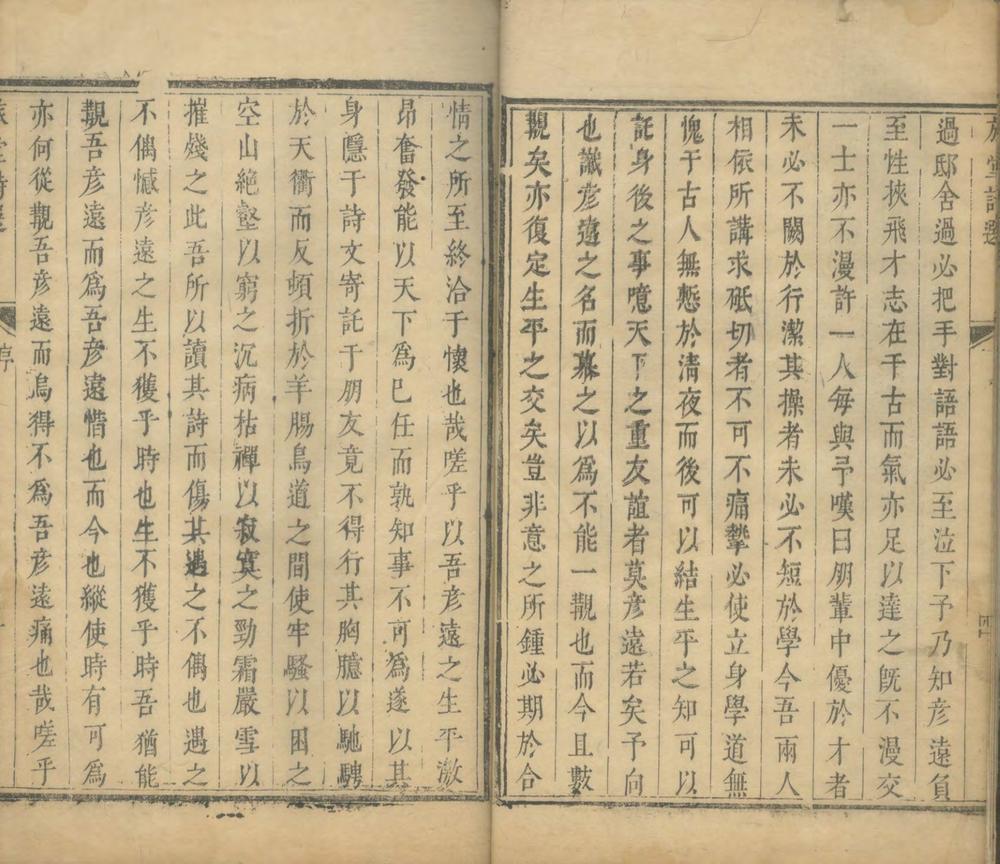 過邸舍過必把手對語語必至泣下予乃知彥遠負
至性挾飛才志在千古而氣亦足以達之旣不漫交
一士亦不漫許一人每與予嘆曰朋輩中優於才者
未必不闕於行潔其操者未必不短於學今吾兩人
相依所講求砥切者不可不痛摯必使立身學道無
愧于古人無慙於清夜而後可以結生平之知可以
託身後之事噫天下之重友誼者莫彥遠若矣予向
也讖彥遠之名而慕之以爲不能一覯也而今且數
覯矣亦復定生平之交矣豈非意之所鍾必期於合
四
情之所至終洽于懷也哉嗟乎以吾彥遠之生平激
昂奮發能以天下爲已任而孰知事不可爲遂以其
身隱于詩文寄託于朋友竟不得行其胸臆以馳騁
於天衢而反頓折於羊腸鳥道之間使牢騷以困之
空山絶壑以窮之沉病枯禪以寂寞之勁霜嚴雪以
摧殘之此吾所以讀其詩而傷其遇之不偶也遇之
不偶憾彥遠之生不獲乎時也生不獲乎時吾猶能
覯吾彥遠而爲吾彥遠惜也而今也縱使時有可爲
亦何從覯吾彥遠而烏得不爲吾彥遠痛也哉嗟乎
序